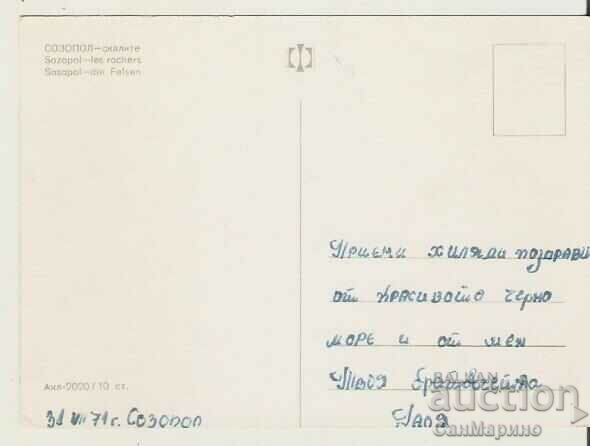 СОЗОПОЛ—скалите
Sozopol—les rochers
Sosopol—die Felsen
Приеми хиляди поздрави
от красивото черно
море и от мен
Твоя братовчедка
Галя
Акл-2020/10 ст.
31 VII 71 г. Созопол
auction
СанМарино